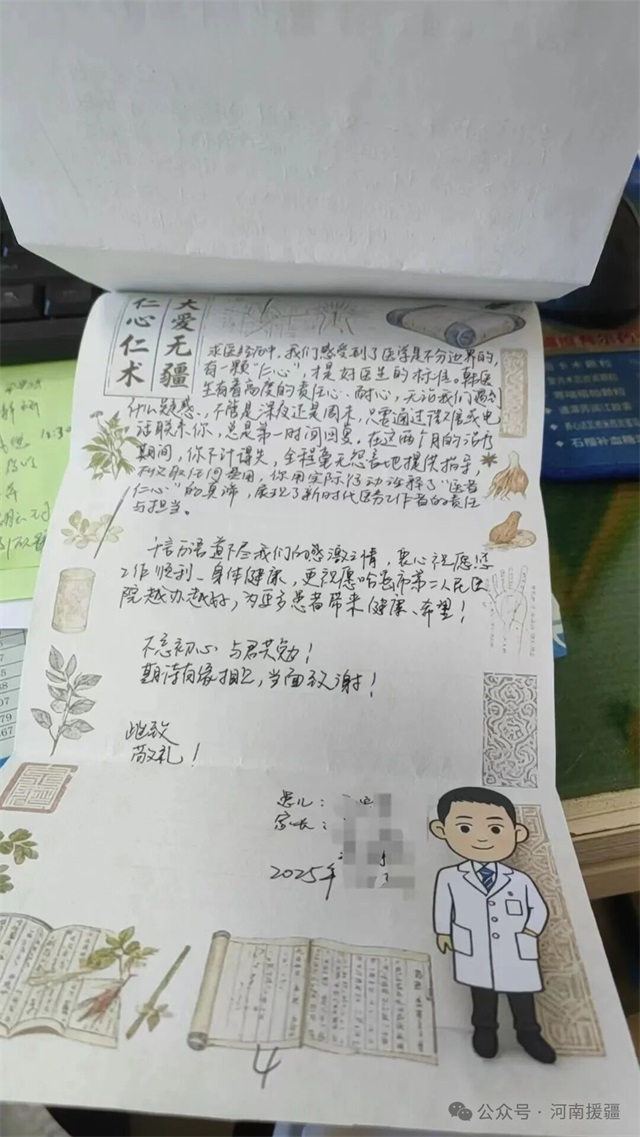 大爱无疆
仁心仁术
求医经历中，我们感受到了医学是不分边界的，
有一颗“仁心”，才是好医生的标准。韩医
生有着高度的责任心、耐心，无论我们遇到
什么疑惑，不管是深夜还是周末，只需通过微信或电
话联系你，总是第一时间回复。在这两个月的治疗
期间，你不计得失，全程毫无怨言地提供指导，
不收取任何费用，你用实际行动诠释了“医者
仁心”的真谛，展现了新时代医务工作者的责任
与担当。
千言万语道不尽我们的感激之情，衷心祝愿您
工作顺利、身体健康，更祝愿哈密市第二人民医
院越办越好，为更多患者带来健康、希望！
不忘初心 与君共勉！
期待有缘相见，当面致谢！
此致
敬礼！
患儿：
家长：
2025年
4
石榴补血糖
公众号·河南援疆